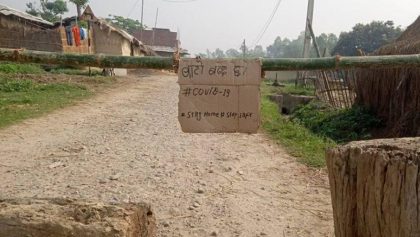 बाटो बन्द छ।
#COVID-19
# Stay Home # Stay safe